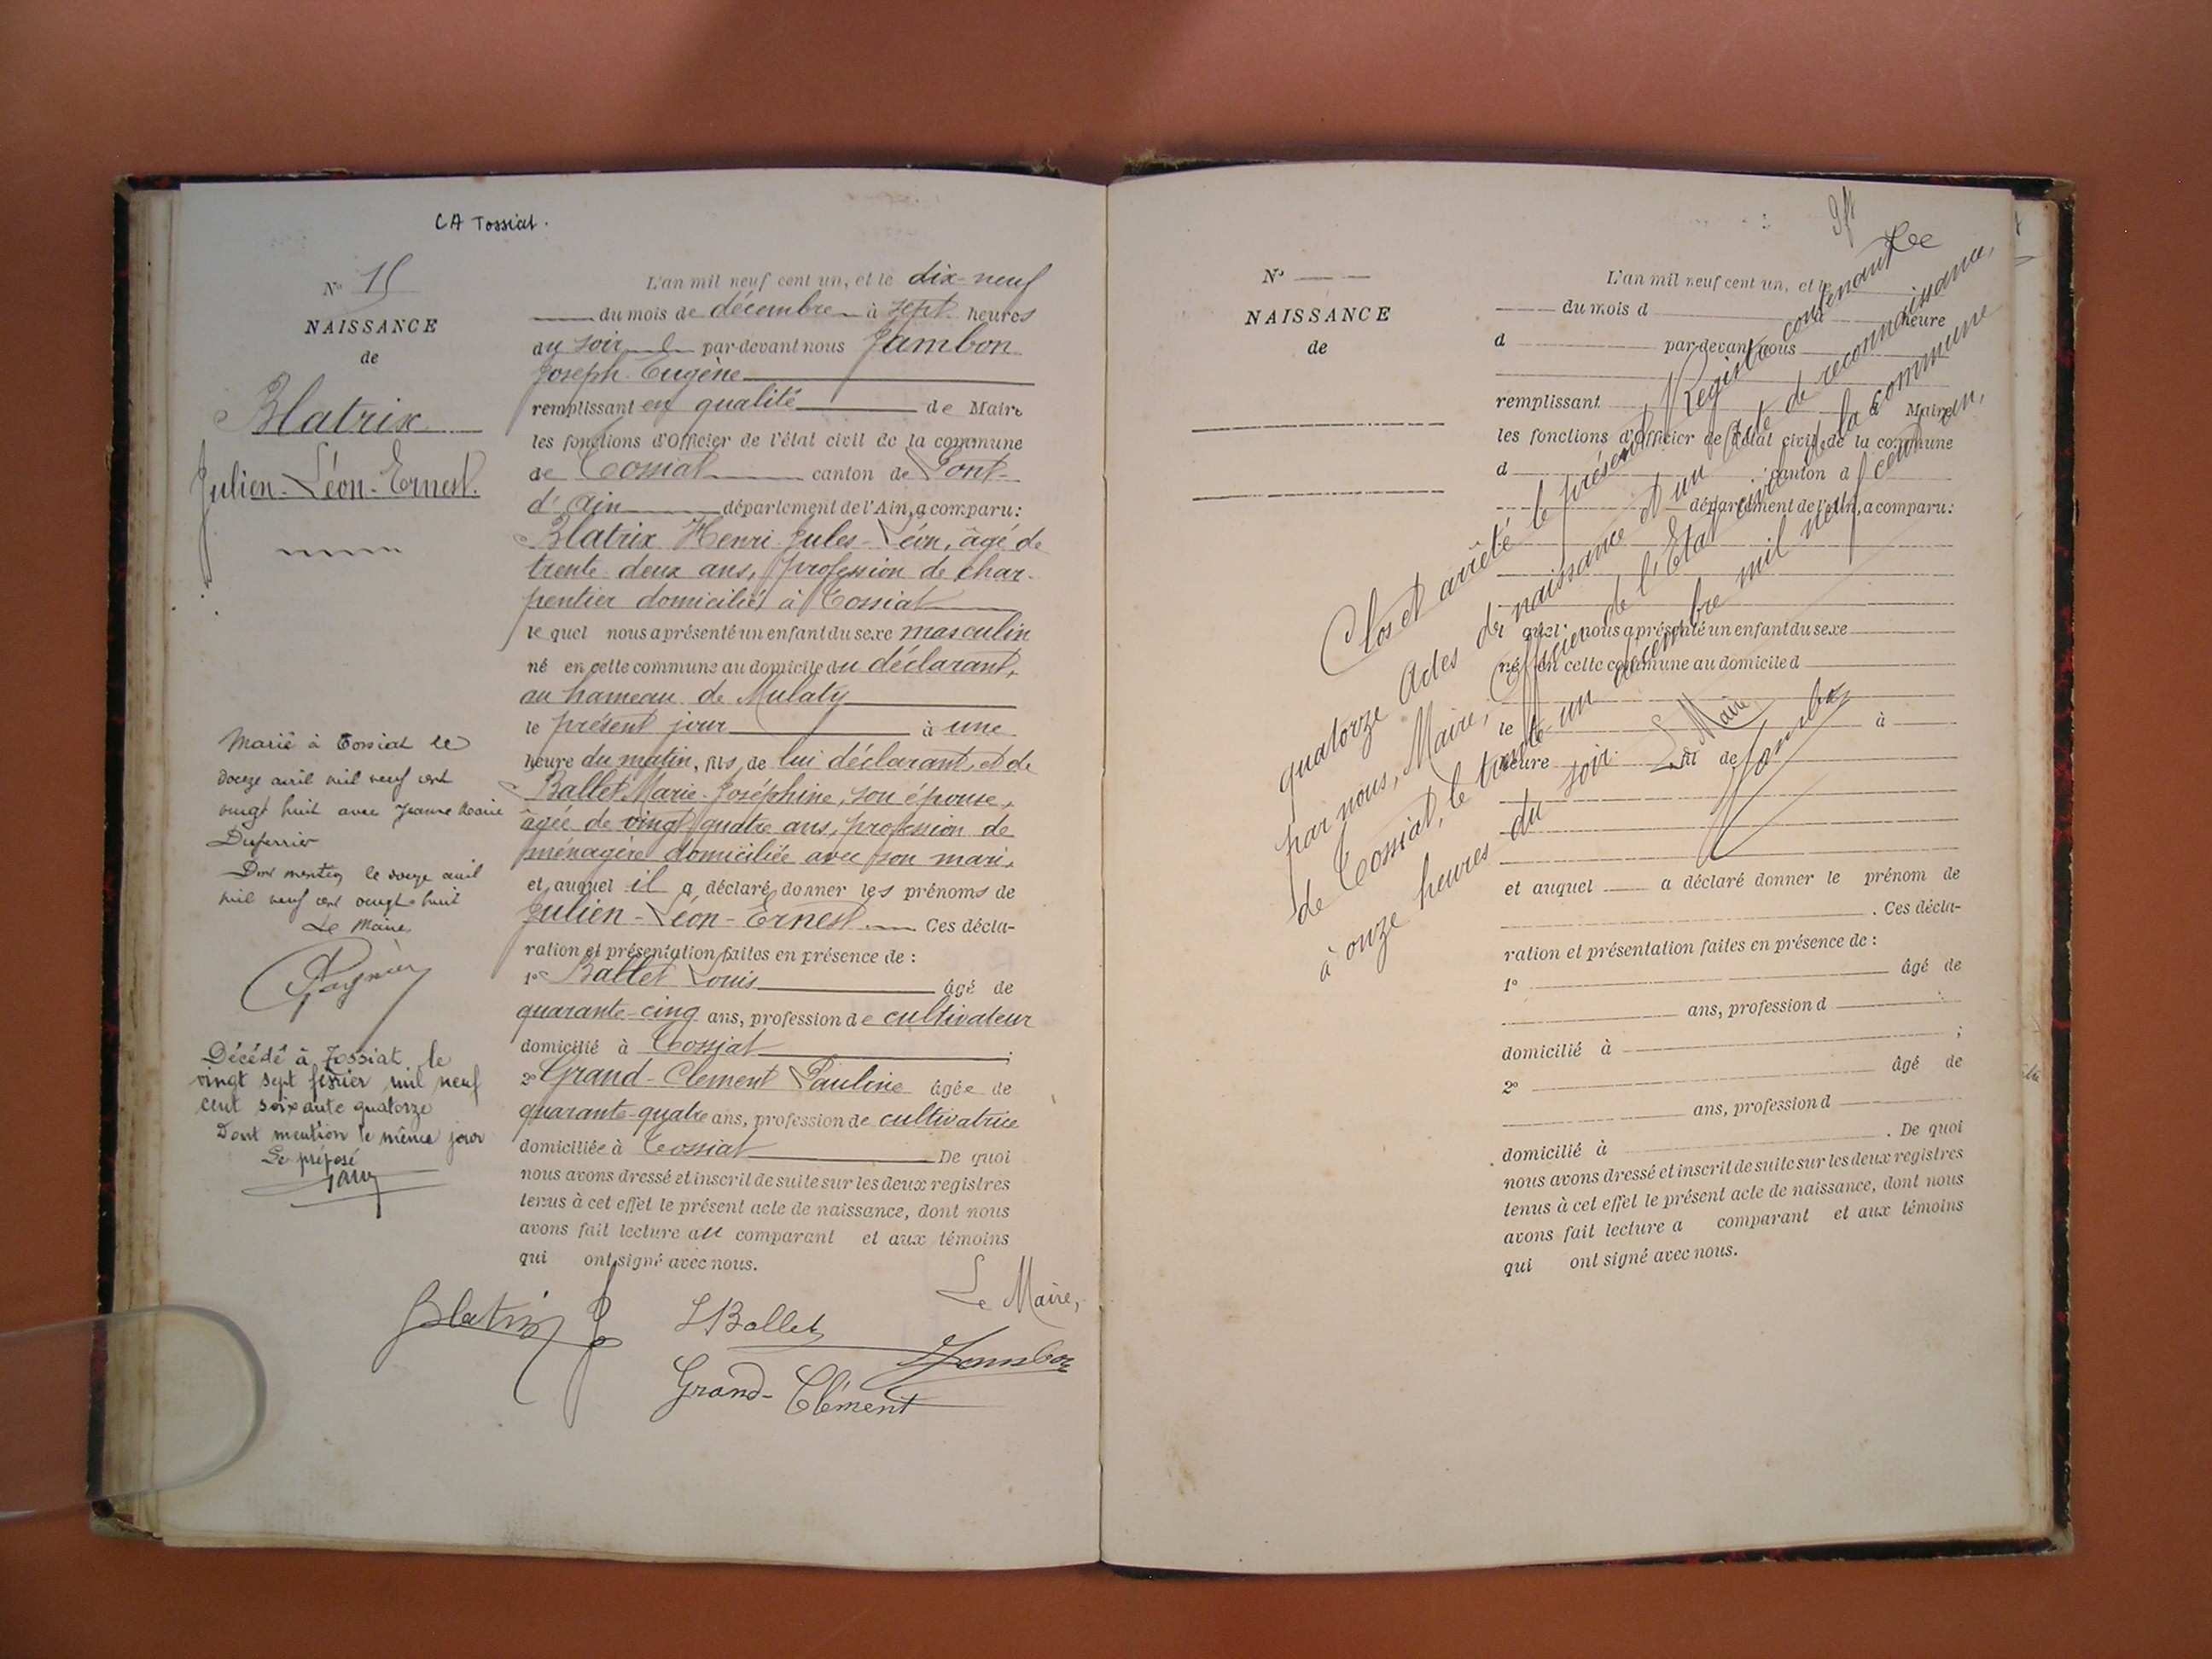 CA Tossiat.
N° 15
NAISSANCE
de
Blatrix
Julien-Léon-Ernest.
L'an mil neuf cent un, et le dix-neuf
du mois de décembre à sept heures
du soir par-devant nous Jambon
Joseph Eugène
remplissant en qualité de Maire
les fonctions d'Officier de l'état civil de la commune
de Tossiat canton de Pont-
d'Ain département de l'Ain, a comparu:
Blatrix Henri Jules-Léon, âgé de
trente deux ans, profession de char-
pentier domicilié à Tossiat
le quel nous a présenté un enfant du sexe masculin
né en cette commune au domicile du déclarant,
au hameau de Mulaty
le présent jour à une
heure du matin, fils de lui déclarant, et de
Ballet Marie-Joséphine, son épouse,
âgée de vingt quatre ans, profession de
ménagère domiciliée avec son mari,
et auquel il a déclaré donner les prénoms de
Julien-Léon-Ernest. Ces décla-
ration et présentation faites en présence de :
1° Ballet Louis âgé de
quarante-cinq ans, profession de cultivateur
domicilié à Tossiat ;
2° Grand-Clement Pauline âgée de
quarante-quatre ans, profession de cultivatrice
domiciliée à Tossiat De quoi
nous avons dressé et inscrit de suite sur les deux registres
tenus à cet effet le présent acte de naissance, dont nous
avons fait lecture au comparant et aux témoins
qui ont signé avec nous.
Le Maire,
Blatrix J
L Ballet
Jambon
Grand-Clément
Marié à Tossiat le
douze avril mil neuf cent
vingt huit avec Jeanne Marie
Duferrier
Dont mention le douze avril
mil neuf cent vingt-huit
Le Maire
Décédé à Tossiat le
vingt sept février mil neuf
cent soixante quatorze
Dont mention le même jour
Le préposé
N° — —
NAISSANCE
de
L'an mil neuf cent un, et le
du mois d heure
d par-devant nous
remplissant Maire
les fonctions d'Officier de l'état civil de la commune
d canton d
département de l'Ain, a comparu:
le quel nous a présenté un enfant du sexe
né en cette commune au domicile d
le à
heure fil de
et auquel a déclaré donner le prénom de
. Ces décla-
ration et présentation faites en présence de :
1° âgé de
ans, profession d
domicilié à ;
2° âgé de
ans, profession d
domicilié à . De quoi
nous avons dressé et inscrit de suite sur les deux registres
tenus à cet effet le présent acte de naissance, dont nous
avons fait lecture a comparant et aux témoins
qui ont signé avec nous.
Clos et arrêté le présent Registre contenant
quatorze Actes de naissance et un acte de reconnaissance,
par nous, Maire, Officier de l'Etat civil de la commune
de Tossiat, le trente-un décembre mil neuf cent un,
à onze heures du soir.
Le Maire
Jambon